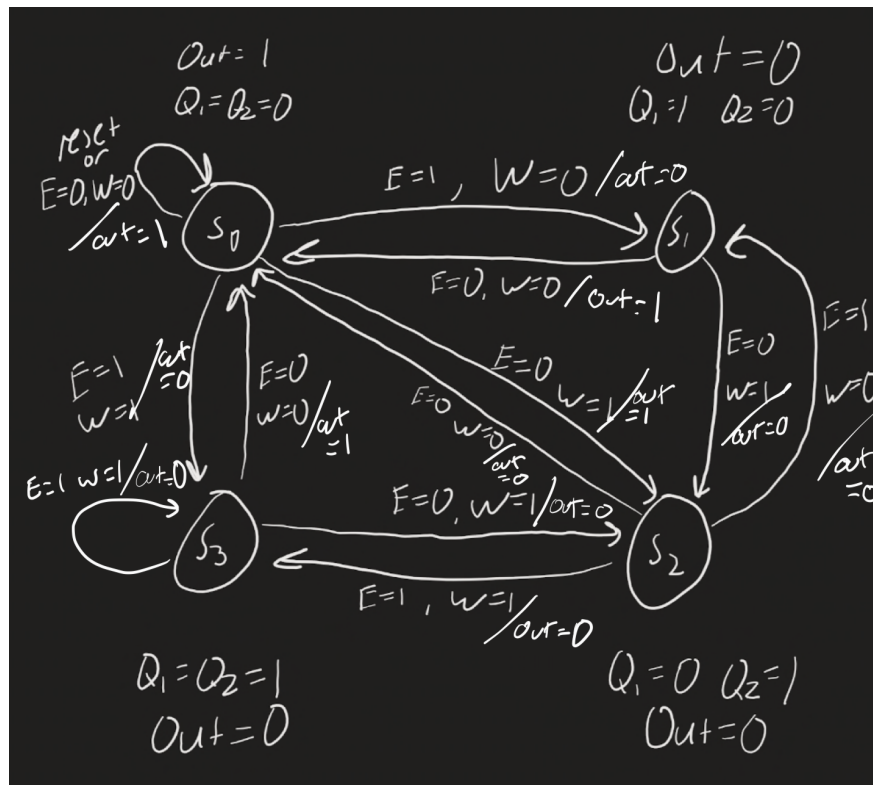 Out = 1
Q1 = Q2 = 0
Out = 0
Q1 = 1 Q2 = 0
reset
or
E=0, W=0
/out = 1
S0
E=1, W=0 /out=0
S1
E=0, W=0 /out=1
E=1
W=1 /out
=0
E=0
W=0 /out
=1
E=0
W=1 /out
=1
E=0
W=0
/out
=0
E=0
W=1
/out=0
E=1
W=0
/out
=0
E=1 W=1 /out=0
S3
E=0, W=1 /out=0
S2
E=1, W=1
/out=0
Q1 = Q2 = 1
Out = 0
Q1 = 0 Q2 = 1
Out = 0